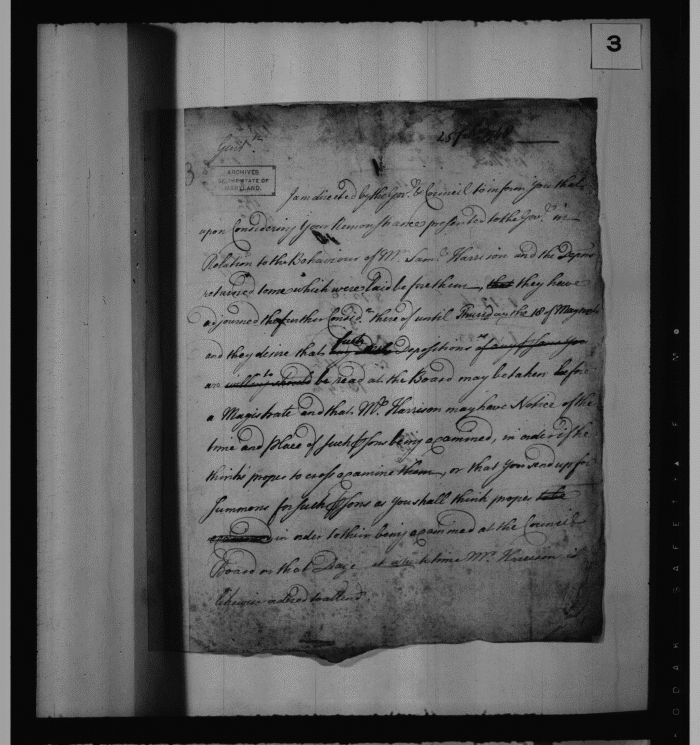 3
Gent.n
25 1768
3
ARCHIVES
OF THE STATE OF
MARYLAND.
I am directed by the Gov.r & Council to inform you that
upon Considering Your Remonstrance presented to the Gov.r in
Relation to the Behaviour of Mr. Sam.l Harrison and the Depons
returned to me which were laid before them, that they have
adjourned the further Consid.n thereof until Thursday the 18 of May next
and they desire that such Depositions as
an should be read at the Board may be taken before
a Magistrate and that Mr. Harrison may have Notice of the
time and place of such psons being examined, in order if he
thinks proper to cross examine them, or that you send up for
Summons for such psons as you shall think proper
in order to their being examined at the Council
Board on that Day at which time Mr. Harrison is
likewise ordered to attend.
KODAK SAFETY FILM